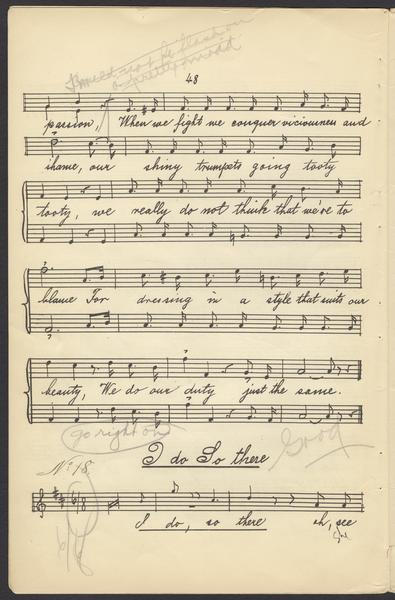 48
passion, When we fight we conquer viciousness and
shame, our shiny trumpets going tooty
tooty, we really do not think that we're to
blame For dressing in a style that suits our
beauty, We do our duty just the same.
go right on
Good
I do So there
No 18.
6/8
I do, so there oh, see